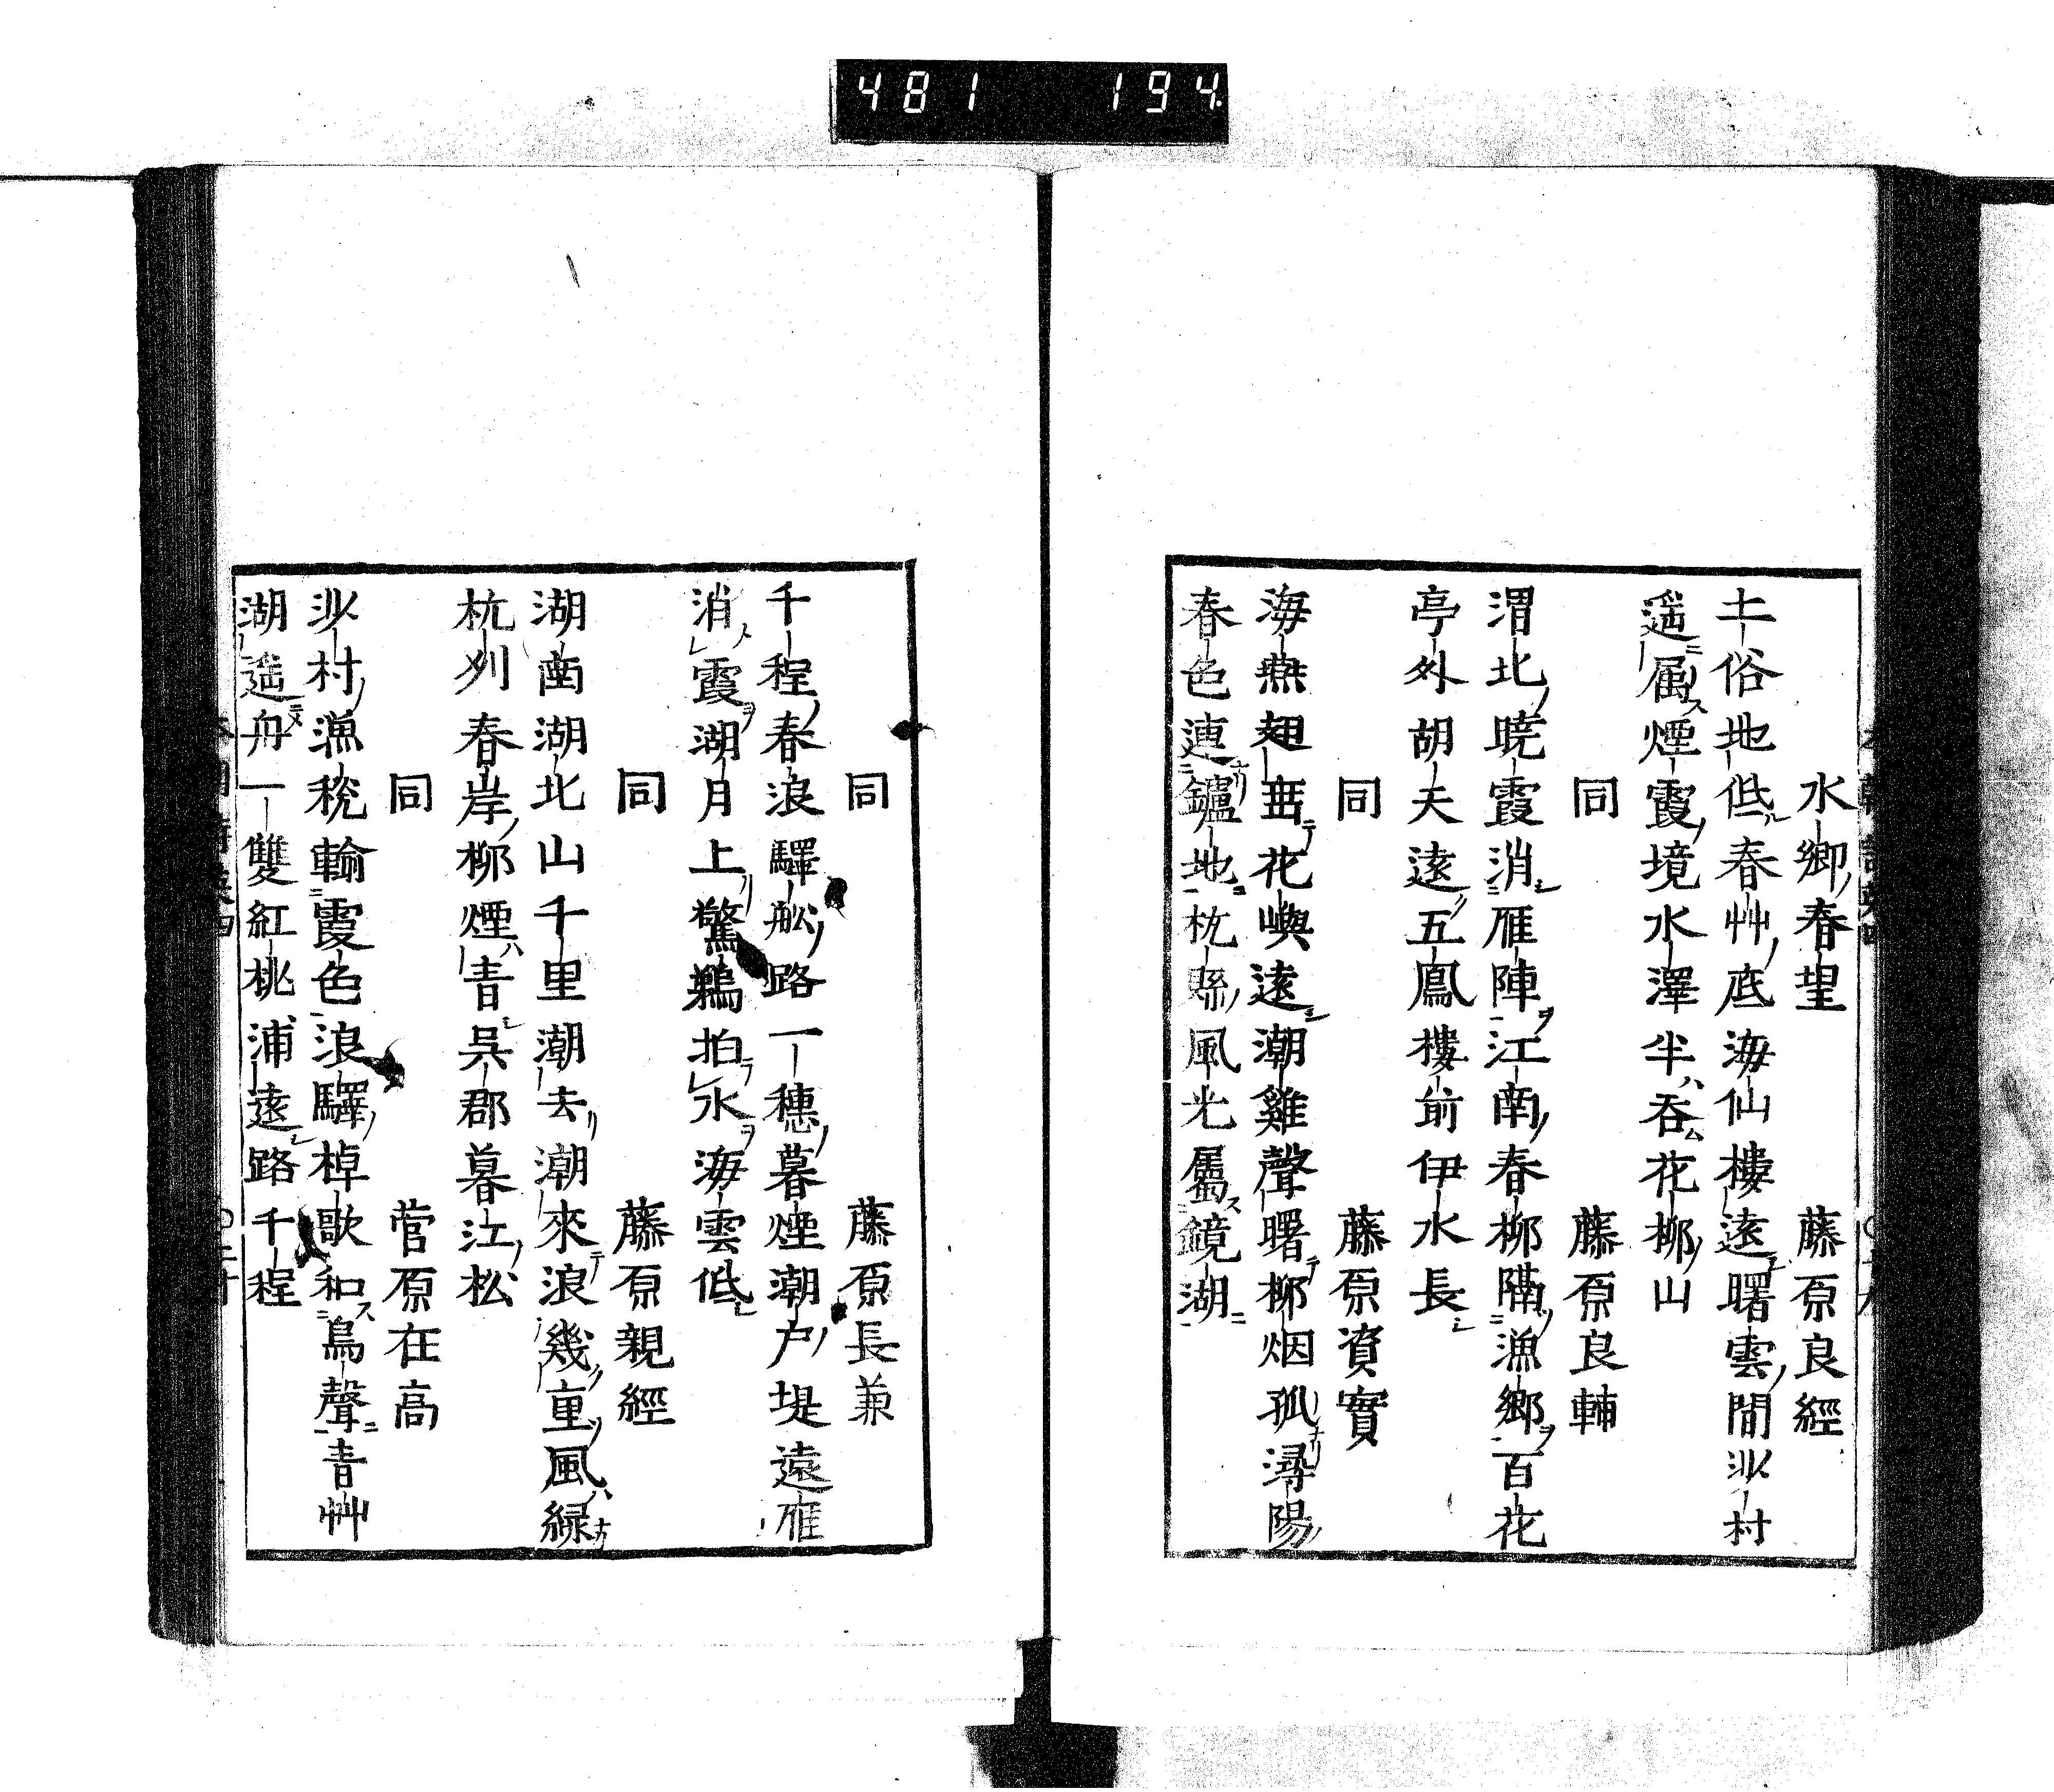 481 194
水郷春望 藤原良經
土俗地低春艸底海仙樓遠曙雲間沙村
遥属煙霞境水澤半呑花柳山
同 藤原良輔
渭北暁霞消雁陣江南春柳隔漁郷百花
亭外胡天遠五鳳樓前伊水長
同 藤原資實
海燕翅亜花嶼遠潮雞聲曙柳烟孤潯陽
春色連鑪地杭縣風光屬鏡湖
同 藤原長兼
千程春浪驛舩路一穗暮煙潮户堤遠雁
消霞湖月上驚鵜拍水海雲低
同 藤原親經
湖南湖北山千里潮去潮來浪幾重風緑
杭州春岸柳煙青呉郡暮江松
同 菅原在高
沙村漁税輸霞色浪驛棹歌和鳥聲青艸
湖遥舟一雙紅桃浦遠路千程